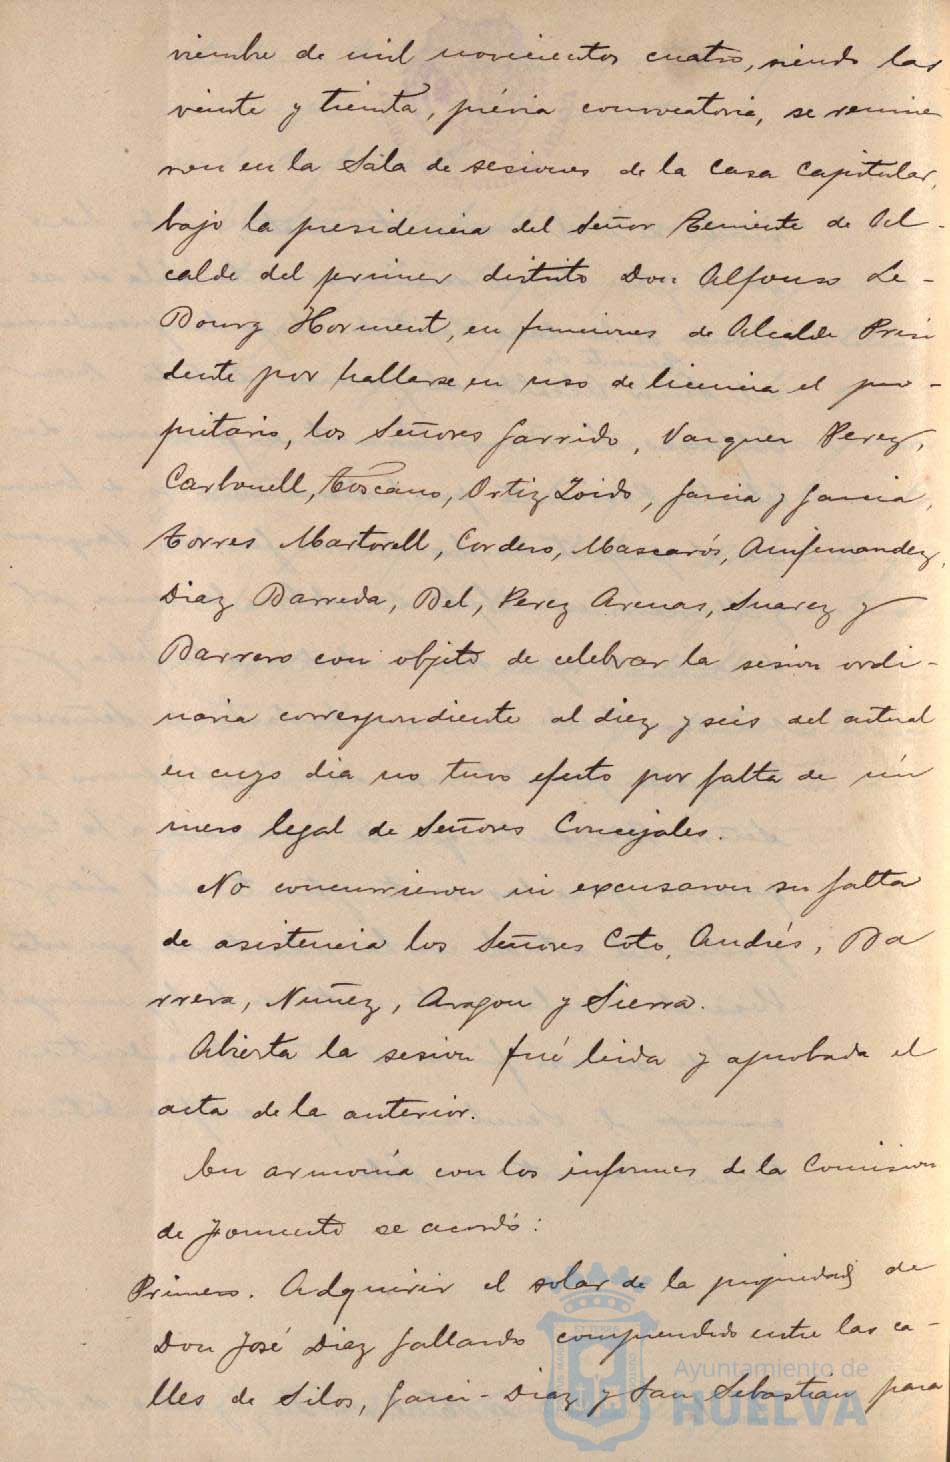 viembre de mil novecientos cuatro, siendo las
veinte y treinta, prévia convocatoria, se reunie
ron en la Sala de sesiones de la Casa Capitular,
bajo la presidencia del Señor Teniente de Al-
calde del primer distrito Don Alfonso Le-
Bourg Horment, en funciones de Alcalde Presi
dente por hallarse en uso de licencia el pro-
pietario, los Señores Garrido, Vazquez Perez,
Carbonell, Toscano, Ortiz Zoido, Garcia y Garcia,
Torres Martorell, Cordero, Mascarós, Amfernandez,
Diaz Barreda, Bel, Perez Arenas, Suarez y
Barrero con objeto de celebrar la sesion ordi-
naria correspondiente al diez y seis del actual
en cuyo dia no tuvo efecto por falta de nú
mero legal de Señores Concejales.
No concurrieron ni excusaron su falta
de asistencia los Señores Coto, Andrés, Ba
rrera, Nuñez, Aragon y Sierra.
Abierta la sesion fué leida y aprobada el
acta de la anterior.
En armonía con los informes de la Comision
de Fomento se acordó:
Primero. Adquirir el solar de la propiedad de
Don José Diaz Gallardo comprendido entre las ca-
lles de Silos, Garci-Diaz y San Sebastián para
Ayuntamiento de
HUELVA